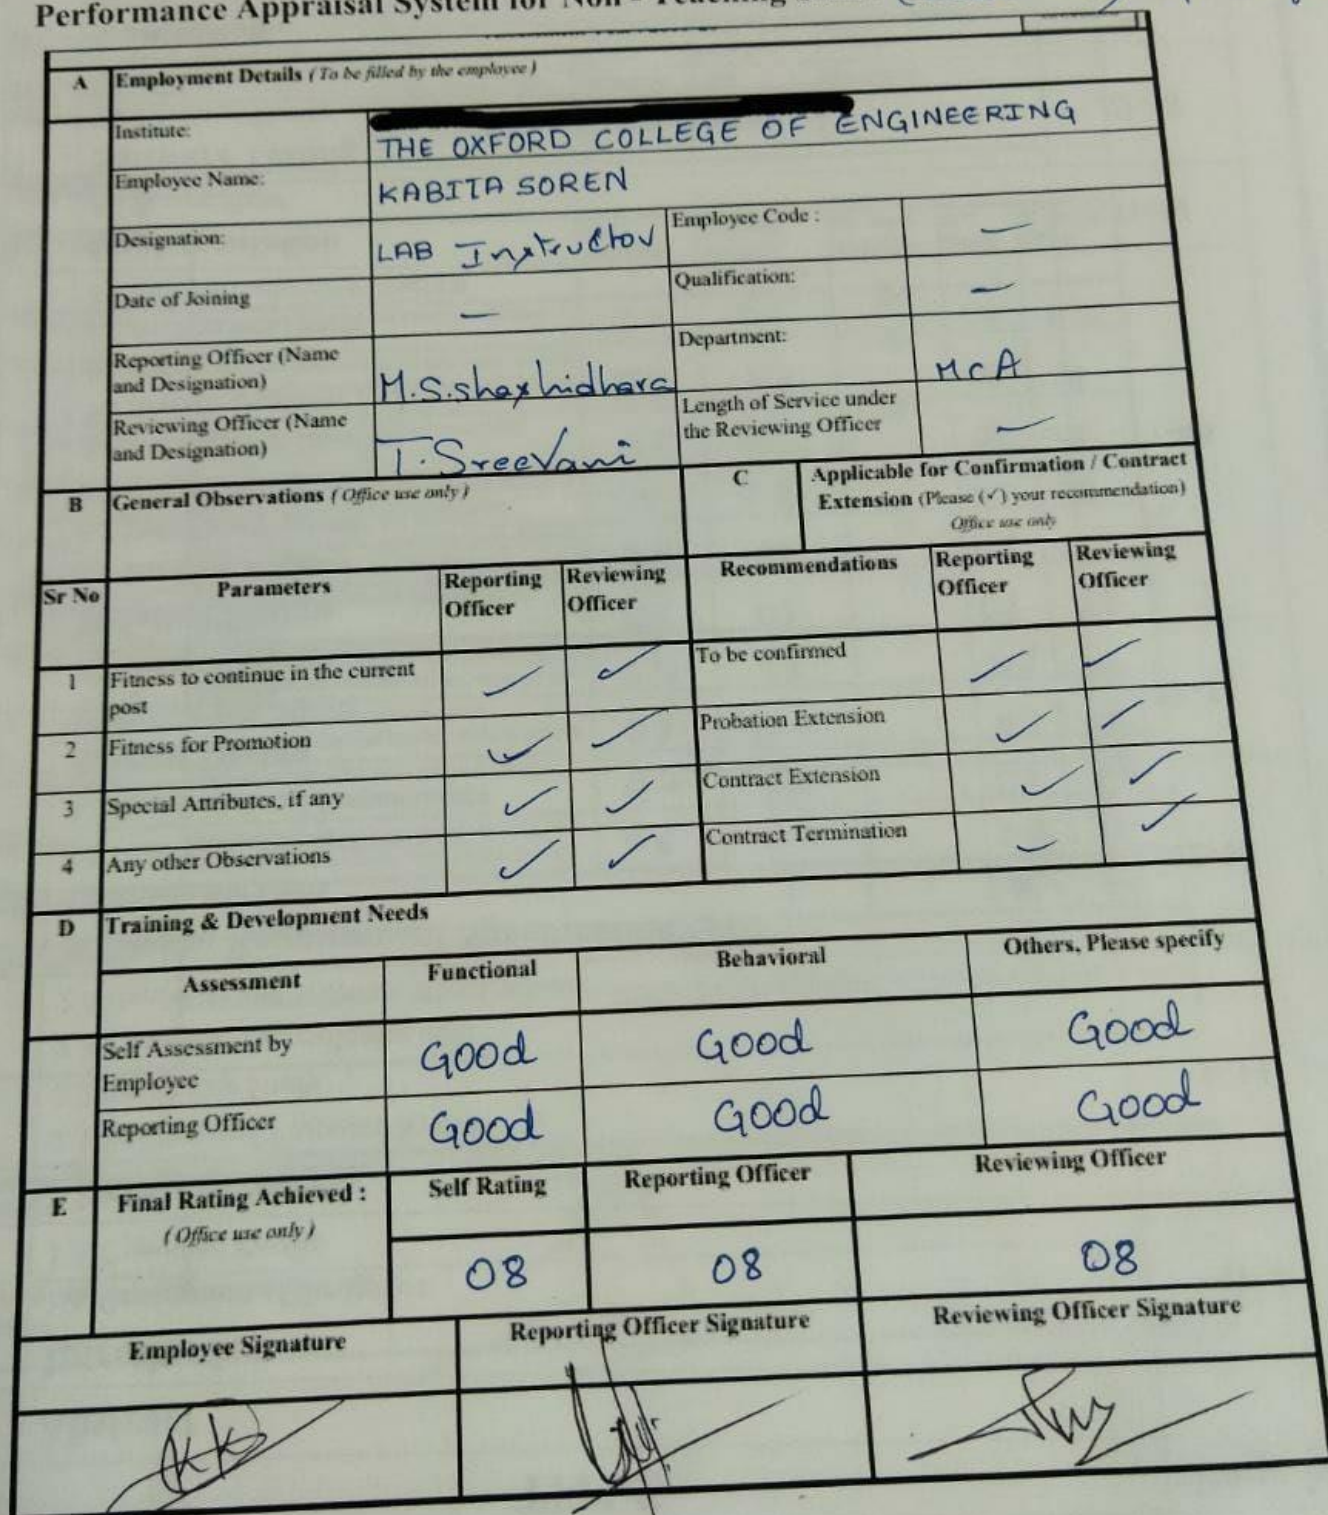 Performance Appraisal System for Non - Teaching
A Employment Details ( To be filled by the employee )
Institute: THE OXFORD COLLEGE OF ENGINEERING
Employee Name: KABITA SOREN
Designation: LAB Instructor Employee Code : —
Date of Joining — Qualification: —
Reporting Officer (Name and Designation) M.S.shashidhara Department: MCA
Reviewing Officer (Name and Designation) T.SreeVani Length of Service under the Reviewing Officer —
B General Observations ( Office use only )
C Applicable for Confirmation / Contract
Extension (Please (✓) your recommendation)
Office use only
Sr No Parameters Reporting Officer Reviewing Officer Recommendations Reporting Officer Reviewing Officer
1 Fitness to continue in the current post ✓ ✓ To be confirmed ✓ ✓
2 Fitness for Promotion ✓ ✓ Probation Extension ✓ ✓
3 Special Attributes, if any ✓ ✓ Contract Extension ✓ ✓
4 Any other Observations ✓ ✓ Contract Termination — ✓
D Training & Development Needs
Assessment Functional Behavioral Others, Please specify
Self Assessment by Employee Good Good Good
Reporting Officer Good Good Good
E Final Rating Achieved : Self Rating Reporting Officer Reviewing Officer
( Office use only ) 08 08 08
Employee Signature Reporting Officer Signature Reviewing Officer Signature